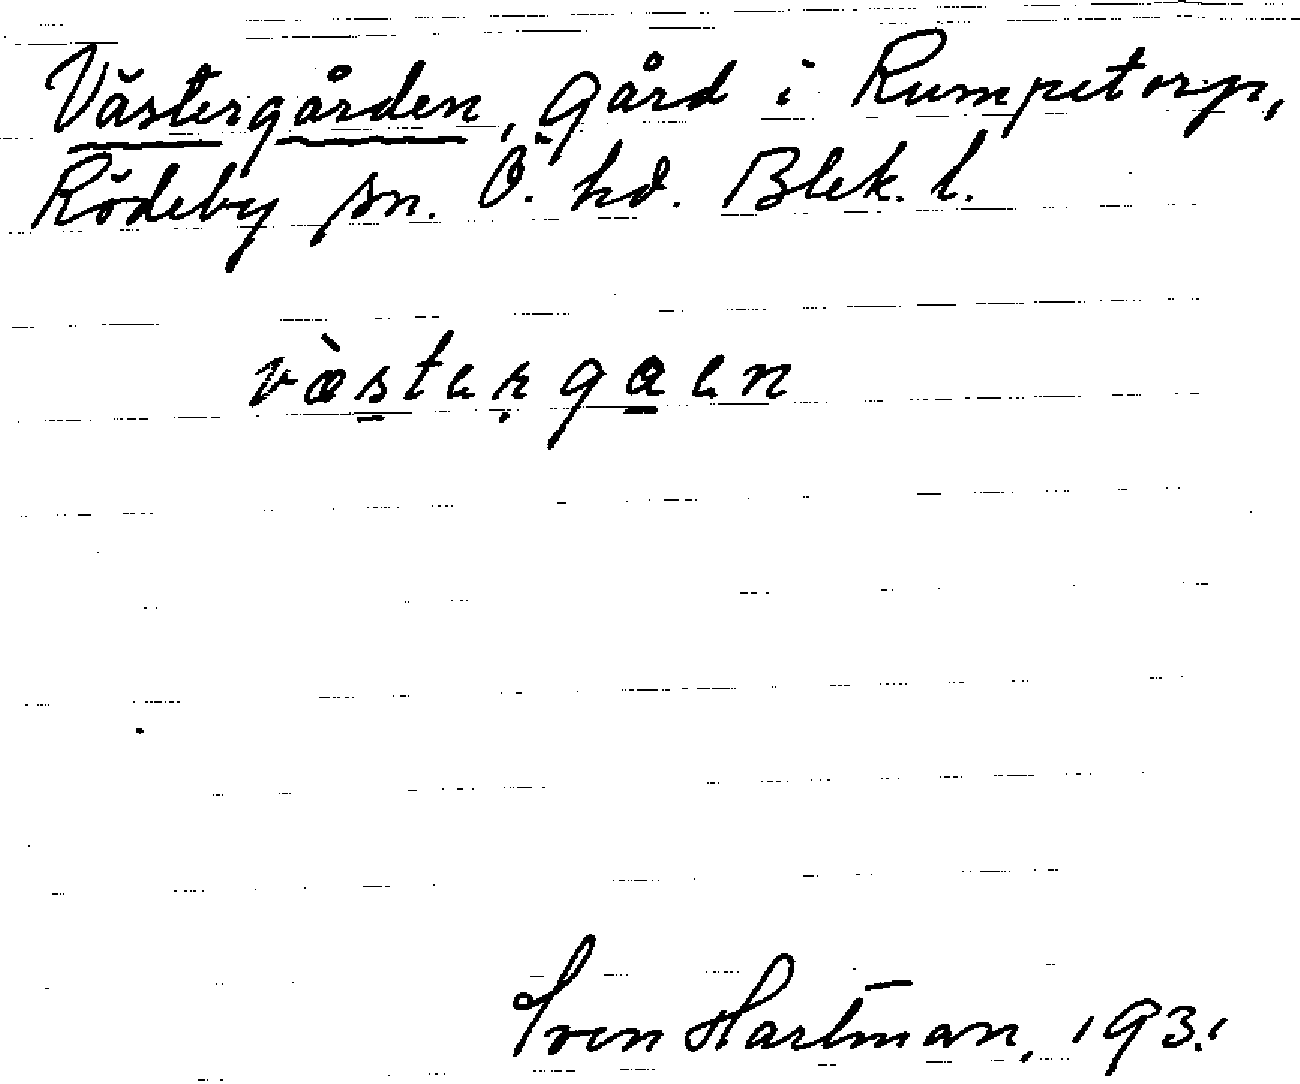 Västergården, gård i Rumpetorp,
Rödeby sn. Ö. hd. Blek. l.
væ̀stərgaən
Sven Hartman, 1931